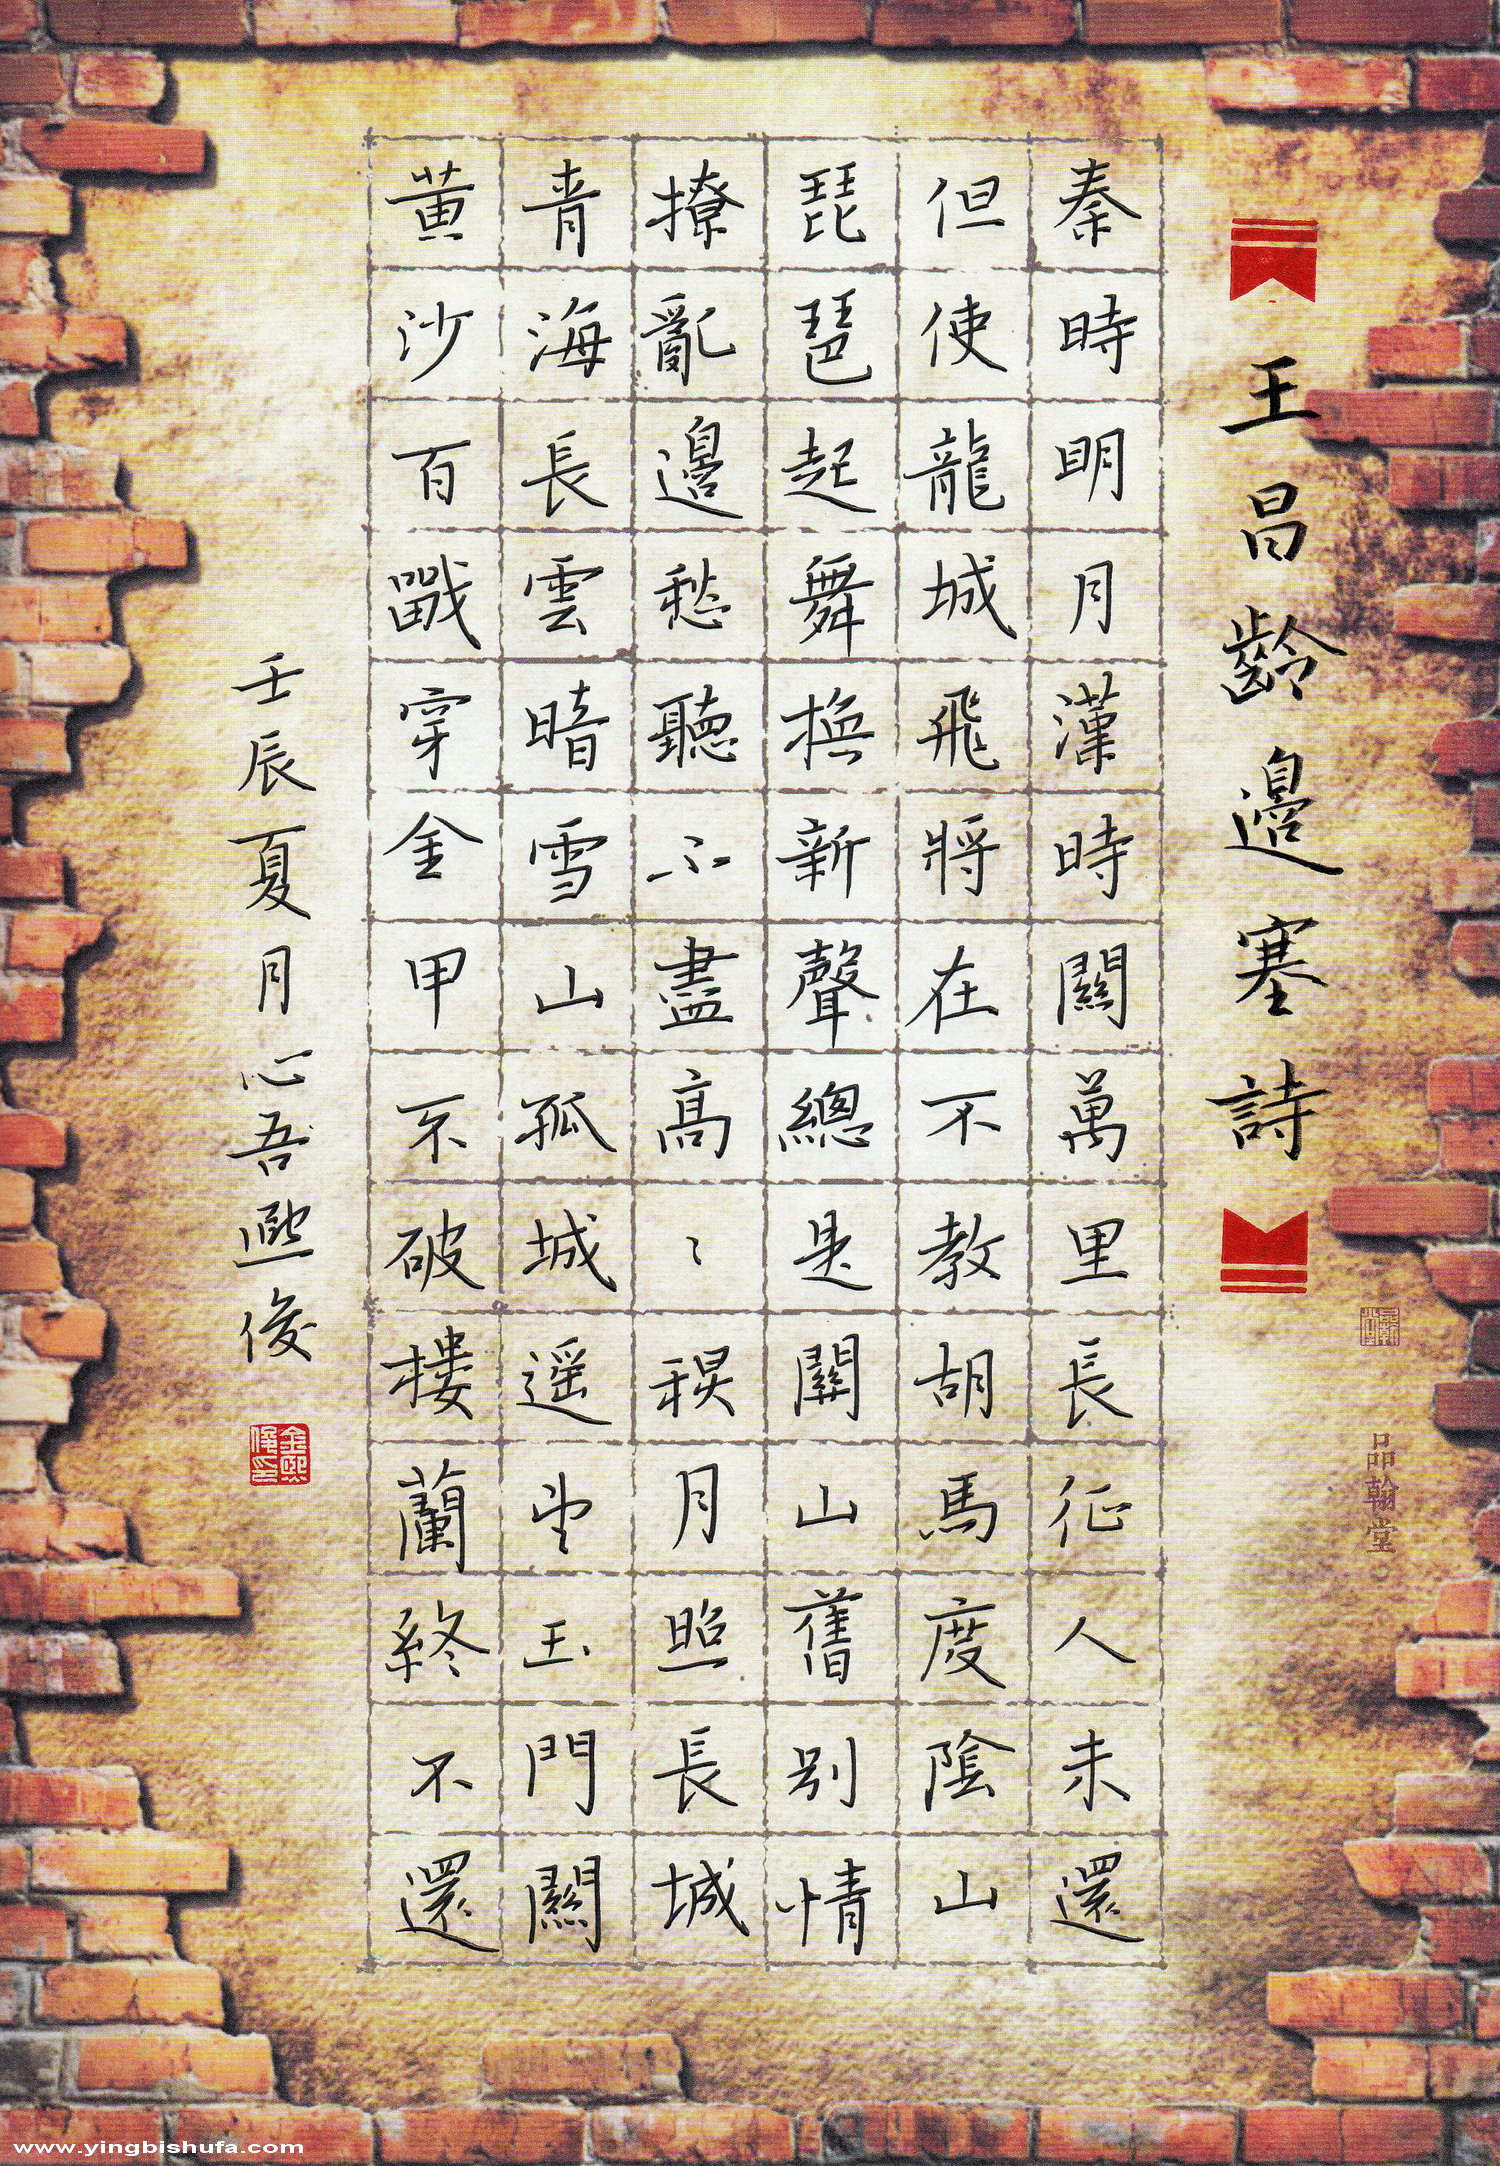 王昌齡邊塞詩
秦時明月漢時關萬里長征人未還
但使龍城飛將在不教胡馬度陰山
琵琶起舞換新聲總是關山舊別情
撩亂邊愁聽不盡高〻秋月照長城
青海長雲暗雪山孤城遥望玉門關
黄沙百戰穿金甲不破樓蘭終不還
壬辰夏月心吾熙俊
金熙俊印
品翰堂
www.yingbishufa.com